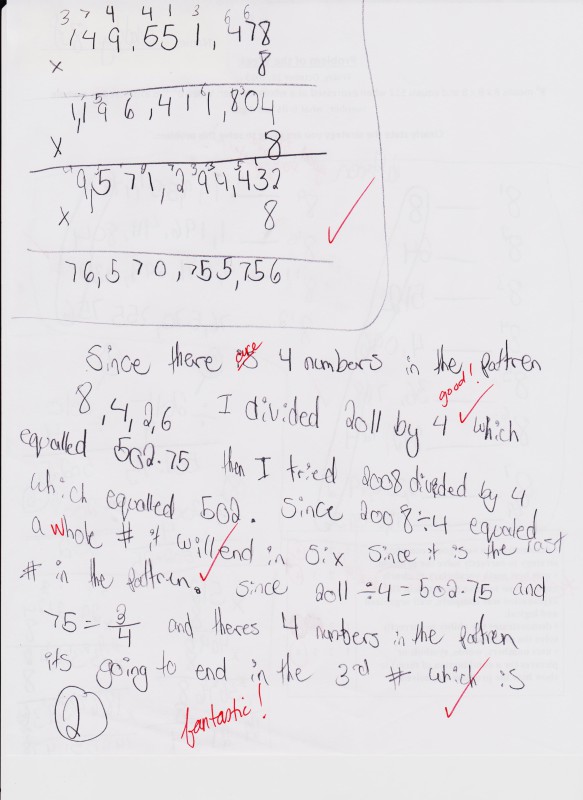 3 7 4 4 1 3 6 6
149,551,478
x 8
1,196,411,804
x 8
9,571,294,432
x 8
76,570,755,756
Since there is are 4 numbers in the pattren
good!
8, 4, 2, 6 I divided 2011 by 4 which
equalled 502.75 then I tried 2008 divided by 4
which equalled 502. Since 2008÷4 equaled
a whole # it will end in six since it is the last
# in the pattren. Since 2011÷4=502.75 and
75=3/4 and theres 4 numbers in the pattren
its going to end in the 3rd # which is
2
fantastic!